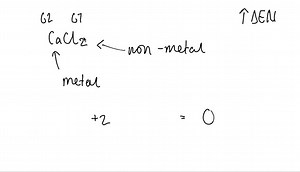 G2 G7 ↑ΔEN
CaCl₂ ← non-metal
↑
metal
+2 = 0